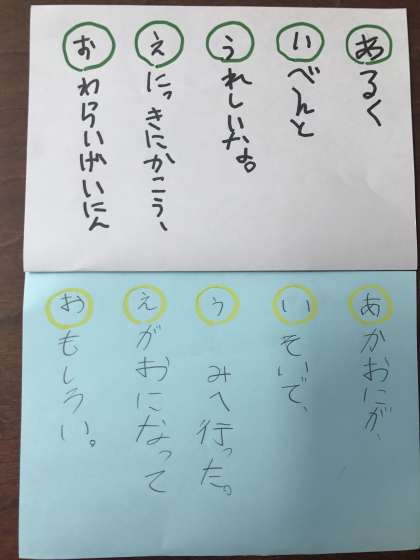 あるく
いべんと
うれしいな。
えにっきにかこう、
おわらいげいにん
あかおにが、
いそいで、
うみへ行った。
えがおになって
おもしろい。